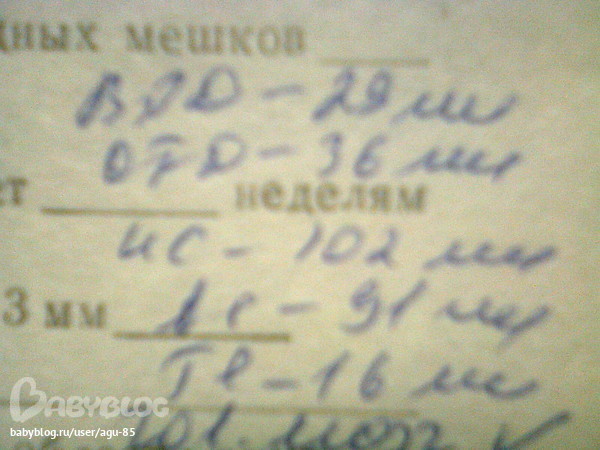 дных мешков
BPD - 29 мм
OFD - 36 мм
ет неделям
HC - 102 мм
3 мм AC - 91 мм
Fl - 16 мм
BABYBLOG
babyblog.ru/user/agu-85